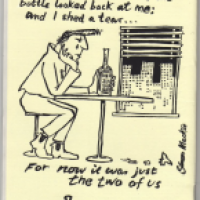 bottle looked back at me;
and I shed a tear...
For now it was just
the two of us